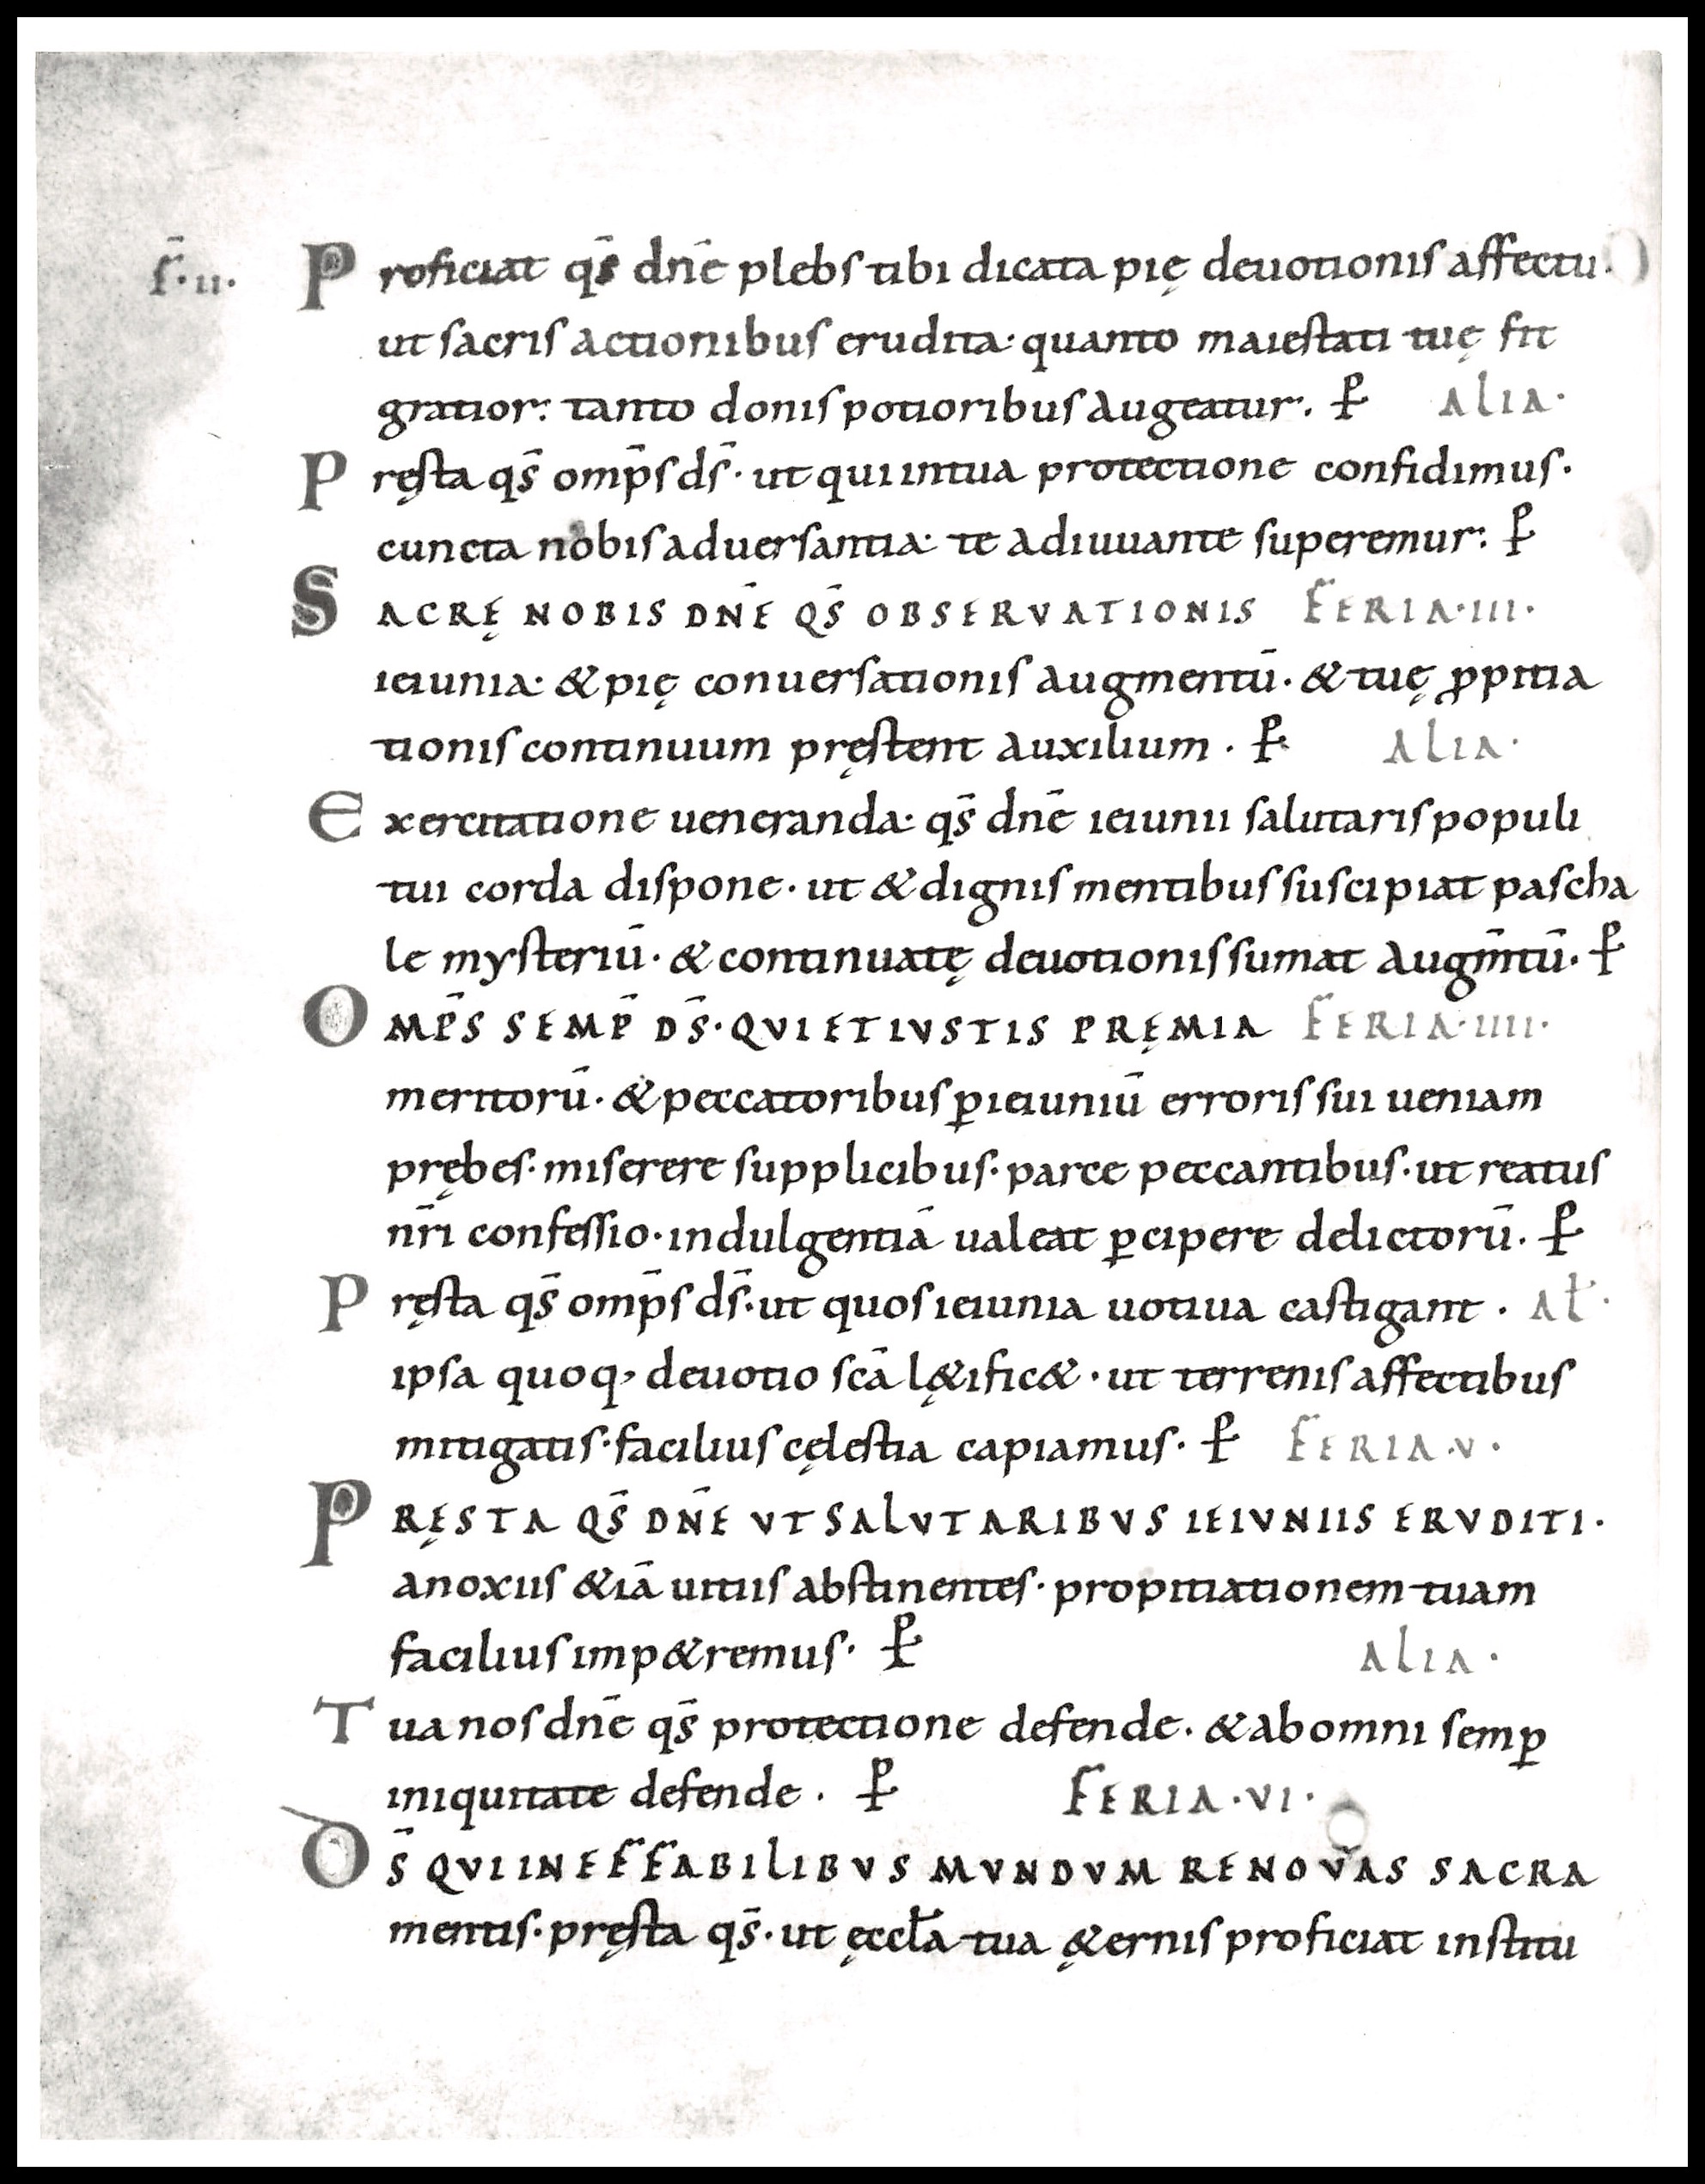 f̄·ii· Proficiat qs̄ dn̄e plebs tibi dicata pię deuotionis affectu·
ut sacris actionibus erudita· quanto maiestati tuę fit
gratior: tanto donis potioribus augeatur. P̵ ALIA·
Pręsta qs̄ omp̄s ds̄· ut qui intua protectione confidimus·
cuncta nobis aduersantia· te adiuuante superemur: P̵
SACRĘ NOBIS DN̄E QS̄ OBSERVATIONIS FERIA·III·
ieiunia· & pię conuersationis augmentū· & tuę ꝓpitia
tionis continuum pręstent auxilium· P̵ ALIA·
Exercitatione ueneranda· qs̄ dn̄e ieiunii salutaris populi
tui corda dispone· ut & dignis mentibus suscipiat pascha
le mysteriū· & continuatę deuotionis sumat augm̄tū· P̵
OMP̄S SEMP̄ DS̄· QVI ET IVSTIS PRĘMIA FERIA·IIII·
meritorū· & peccatoribus ꝑ ieiuniū erroris sui ueniam
prębes· miserere supplicibus· parce peccantibus· ut reatus
nr̄i confessio· indulgentiā ualeat ꝑcipere delictorū· P̵
Pręsta qs̄ omp̄s ds̄· ut quos ieiunia uotiua castigant· Aƚ·
ipsa quoq, deuotio scā lę&ific&· ut terrenis affectibus
mitigatis· facilius cęlestia capiamus· P̵ FERIA·V·
PRĘSTA QS̄ DN̄E VT SALVTARIBVS IEIVNIIS ERVDITI·
anoxiis &iā uitiis abstinentes· propitiationem tuam
facilius imp&remus· P̵ ALIA·
Tua nos dn̄e qs̄ protectione defende· & ab omni semꝑ
iniquitate defende· P̵ FERIA·VI·
DS̄ QVI INEFFABILIBVS MVNDVM RENOVAS SACRA
mentis· pręsta qs̄· ut ęccƚa tua ę&ernis proficiat institu